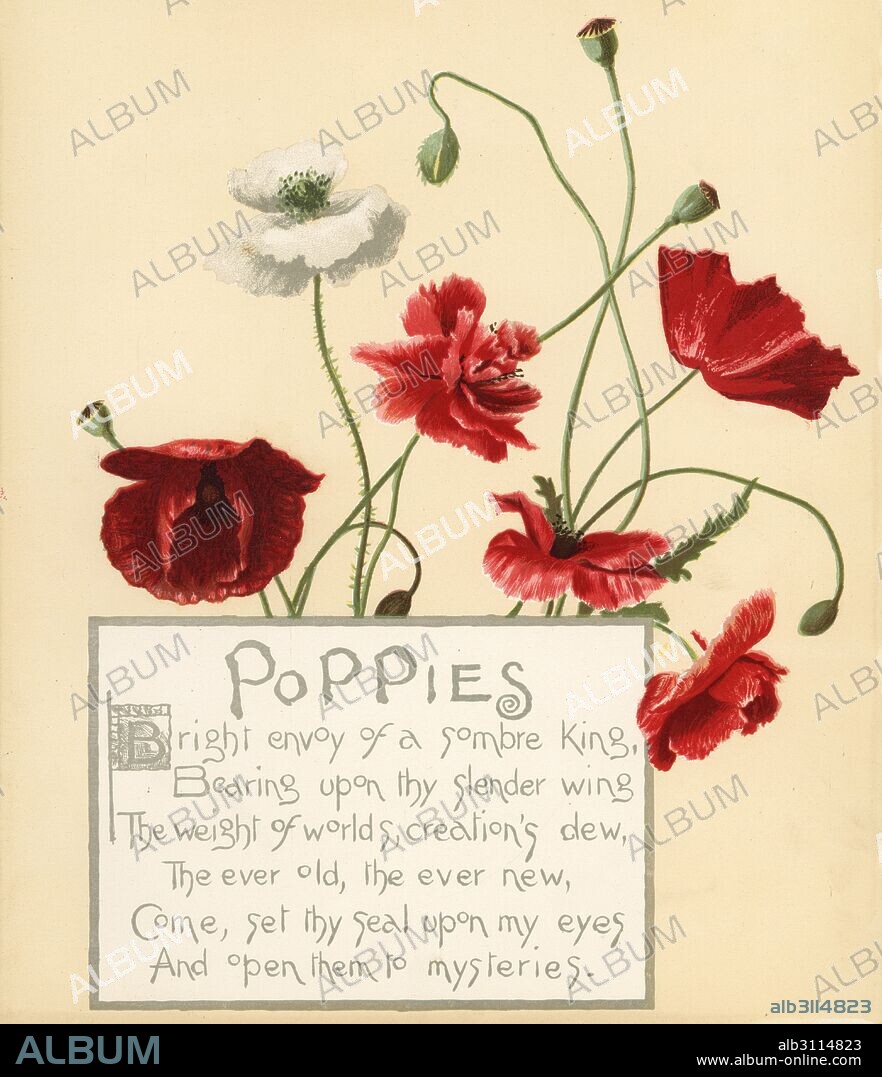 POPPIES
Bright envoy of a sombre King,
Bearing upon thy slender wing
The weight of worlds, creation's dew,
The ever old, the ever new,
Come, set thy seal upon my eyes
And open them to mysteries.
alb3114823
ALBUM
alb3114823
www.album-online.com